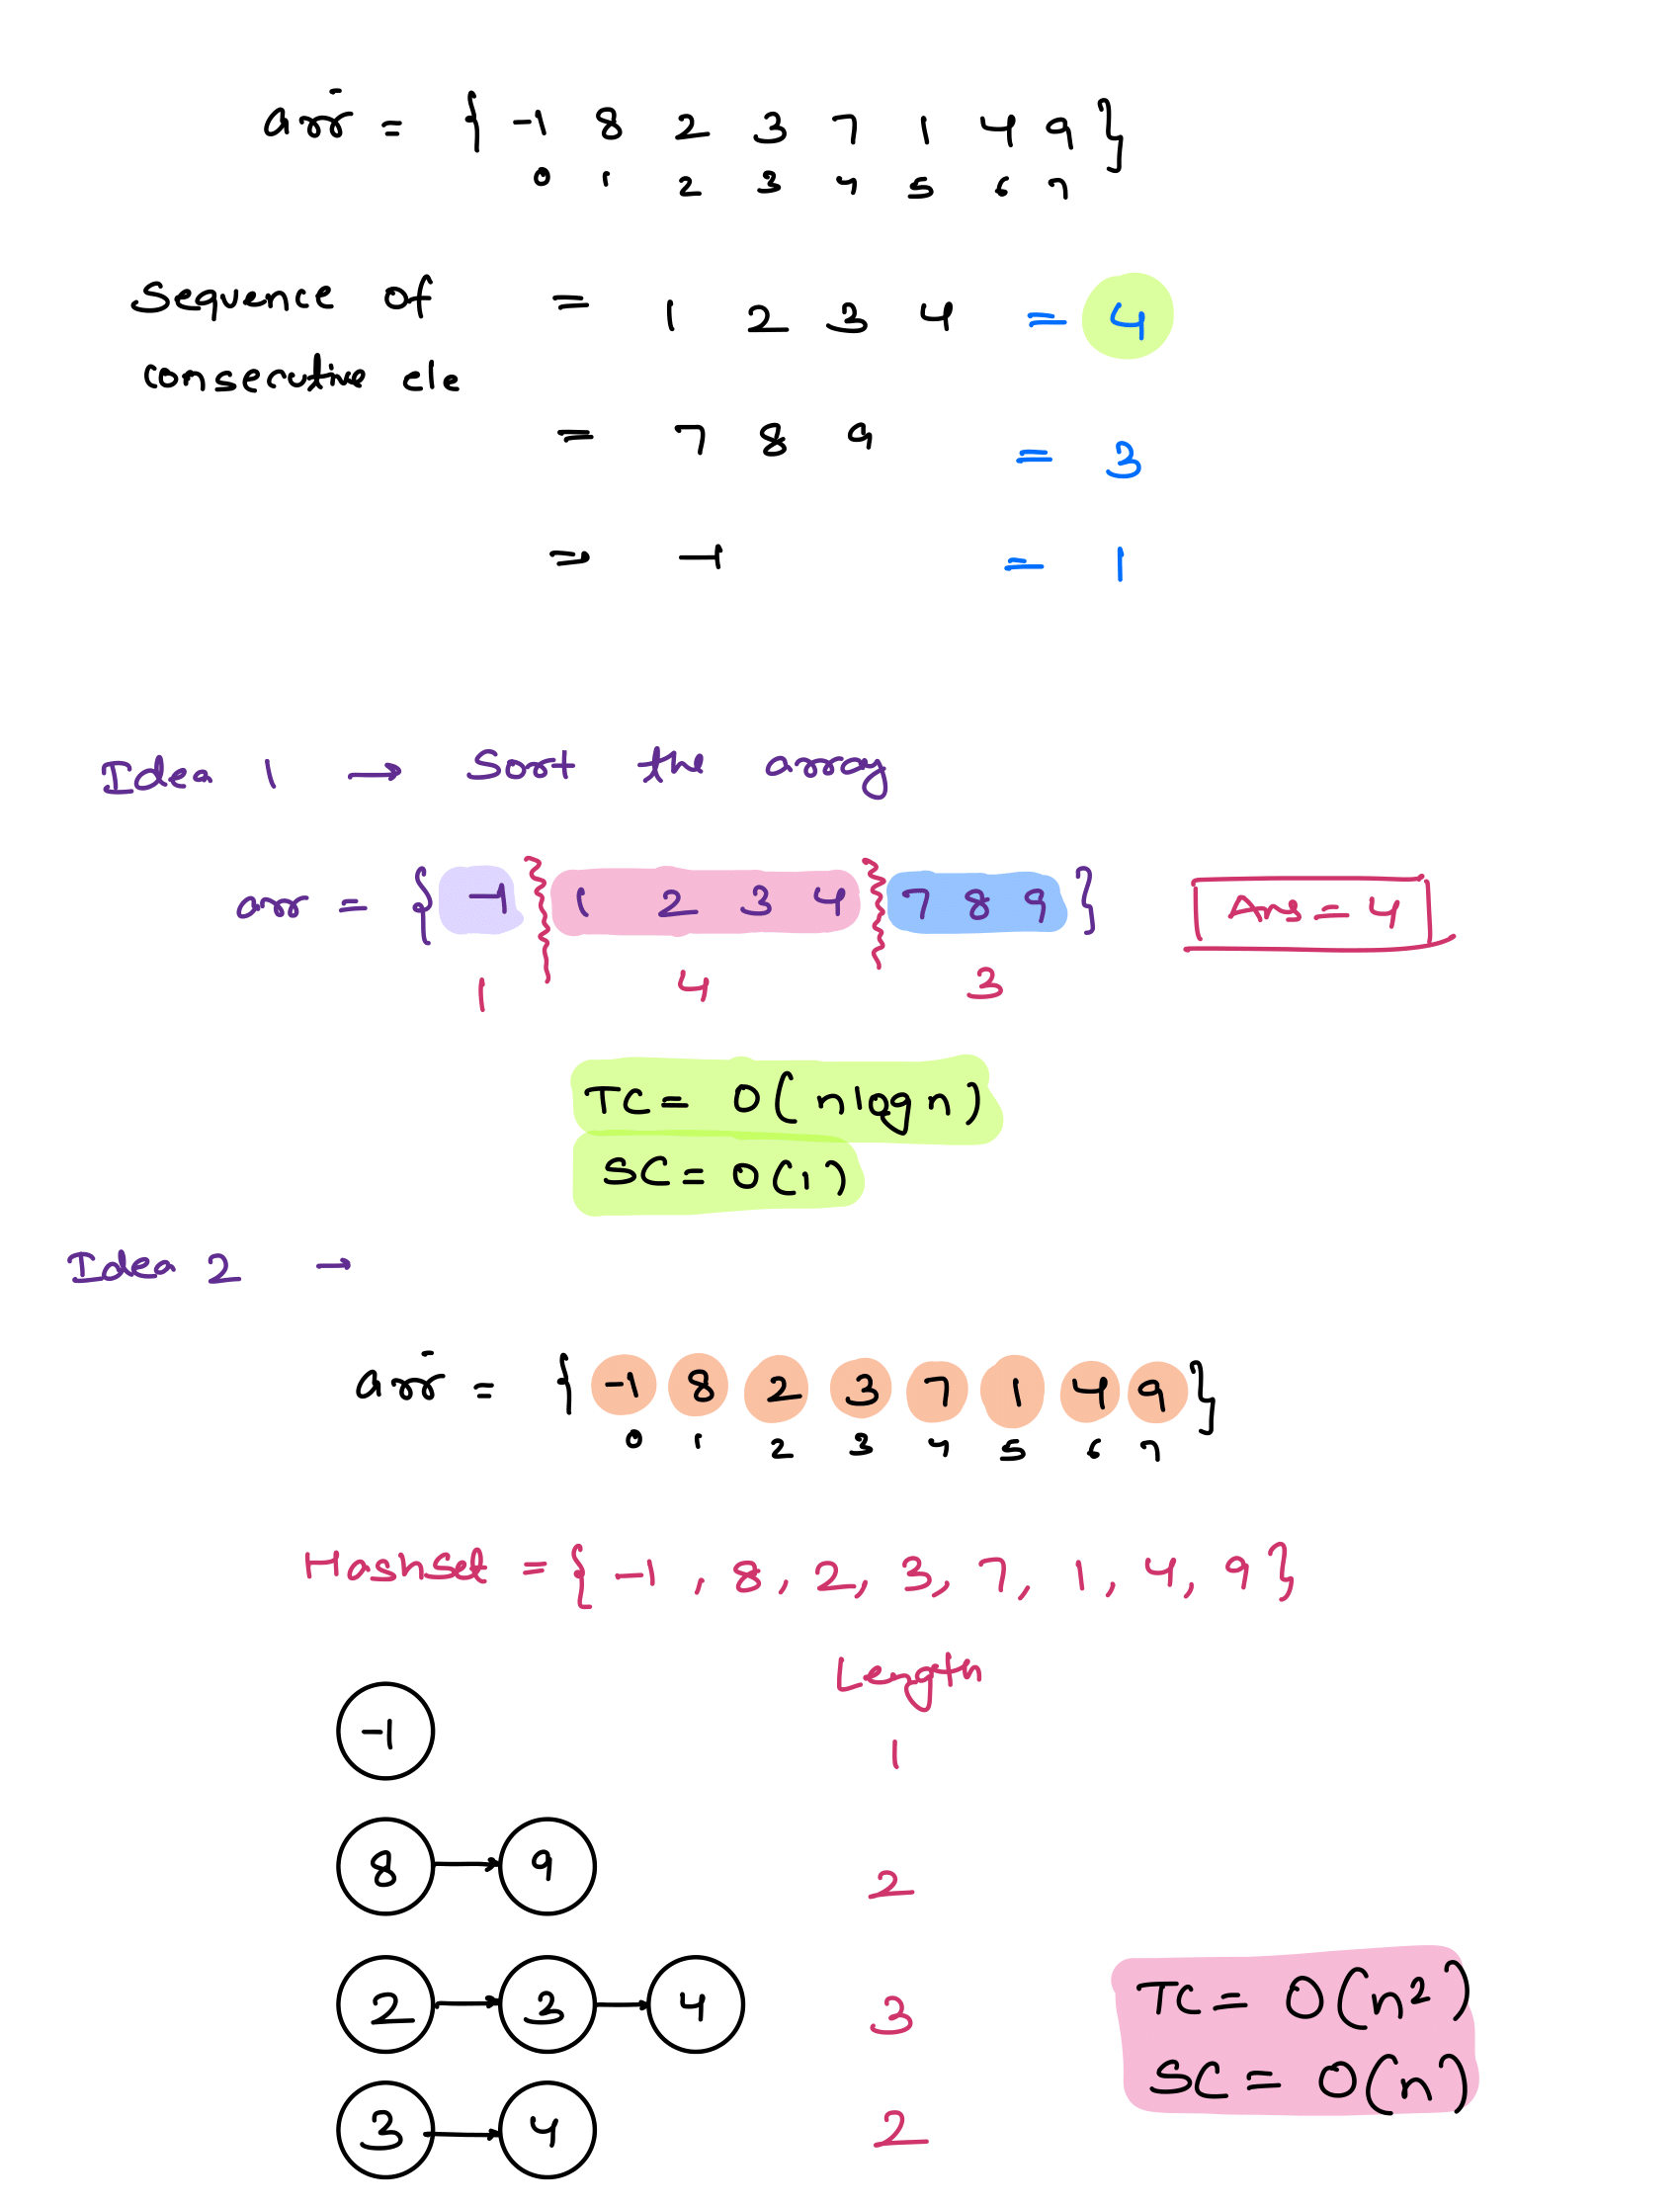 arr = { -1 8 2 3 7 1 4 9 }
0 1 2 3 4 5 6 7
Sequence of = 1 2 3 4 = 4
consecutive ele
= 7 8 9 = 3
= -1 = 1
Idea 1 → Sort the array
arr = { -1 } 1 2 3 4 } 7 8 9 } Ans = 4
1 4 3
TC = O( nlogn )
SC = O(1)
Idea 2 →
arr = { -1 8 2 3 7 1 4 9 }
0 1 2 3 4 5 6 7
Hashset = { -1 , 8 , 2 , 3 , 7 , 1 , 4 , 9 }
Length
-1 1
8 → 9 2
2 → 3 → 4 3
TC = O(n²)
SC = O(n)
3 → 4 2